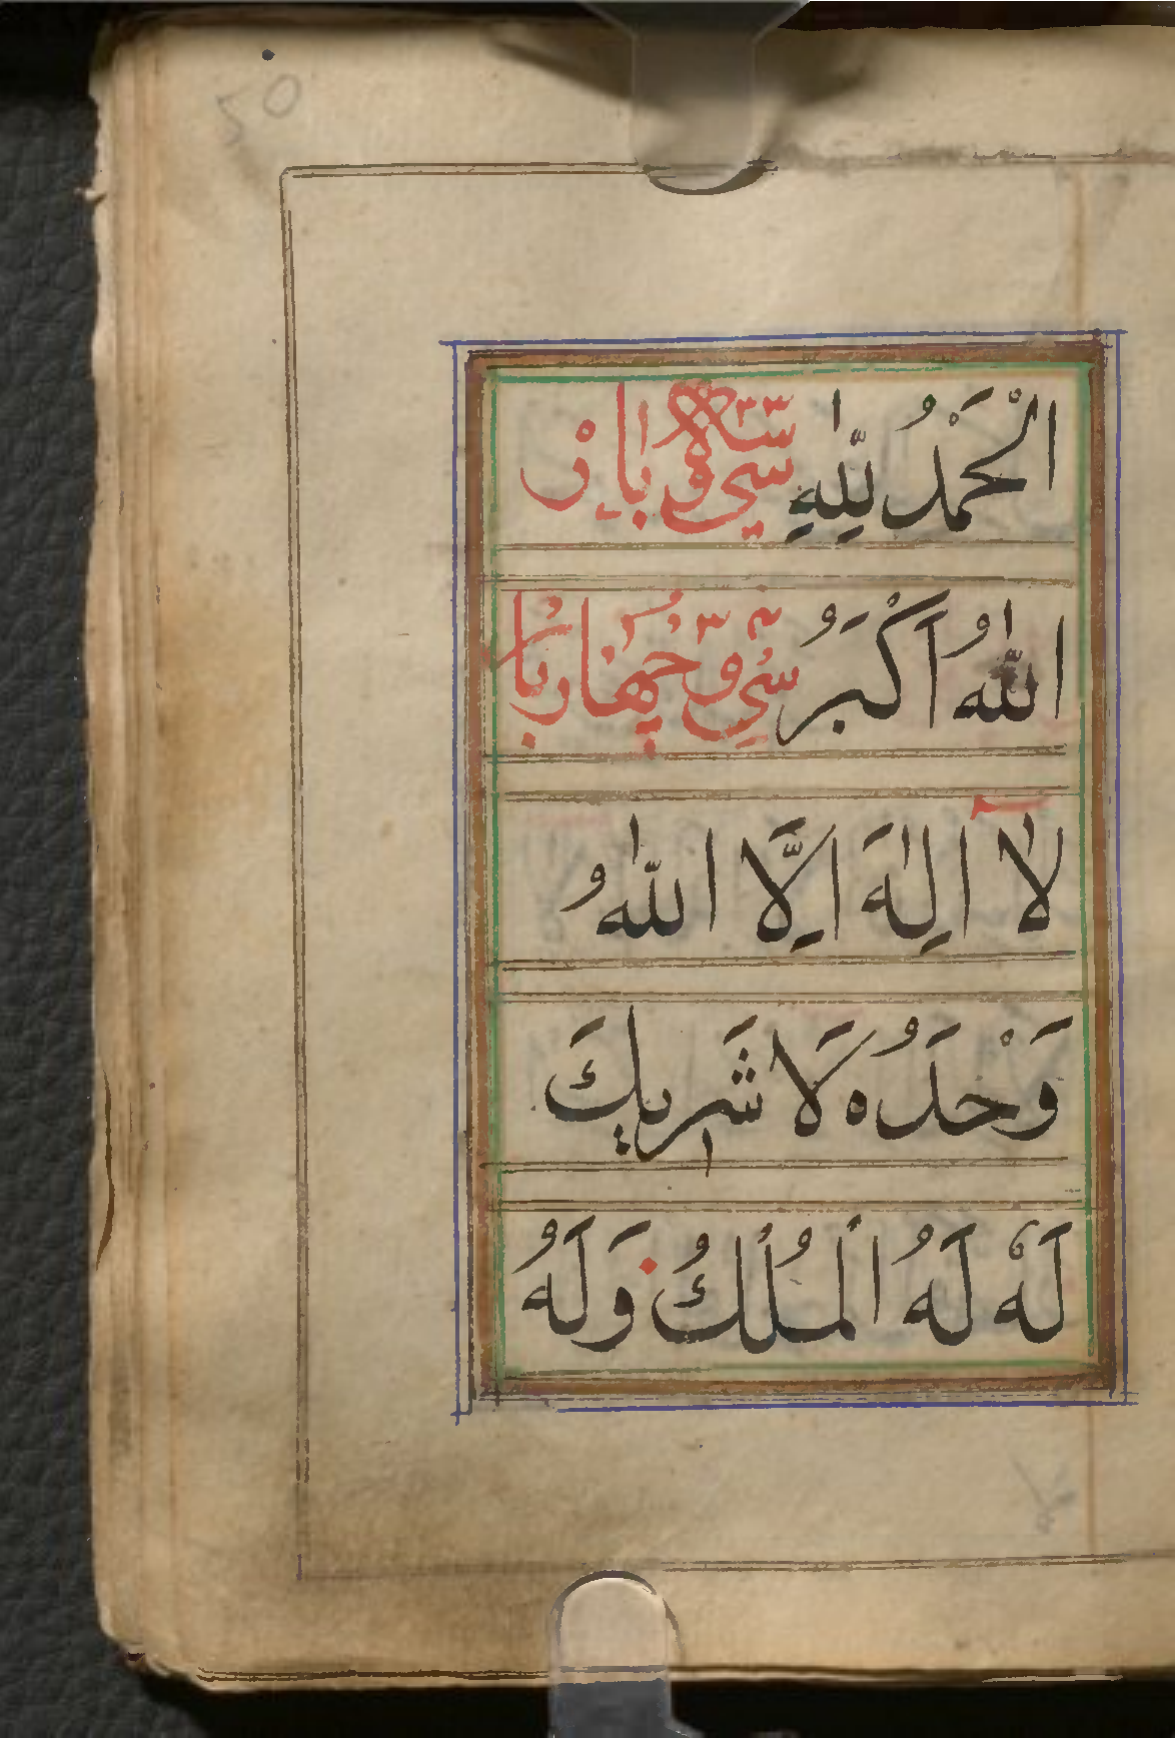 اَلْحَمْدُ لِلّٰهِ سی بار
اللّٰهُ اَكْبَرُ سی و چهار بار
لَا اِلٰهَ اِلَّا اللّٰهُ
وَحْدَهُ لَا شَرِيكَ
لَهُ لَهُ الْمُلْكُ وَلَهُ